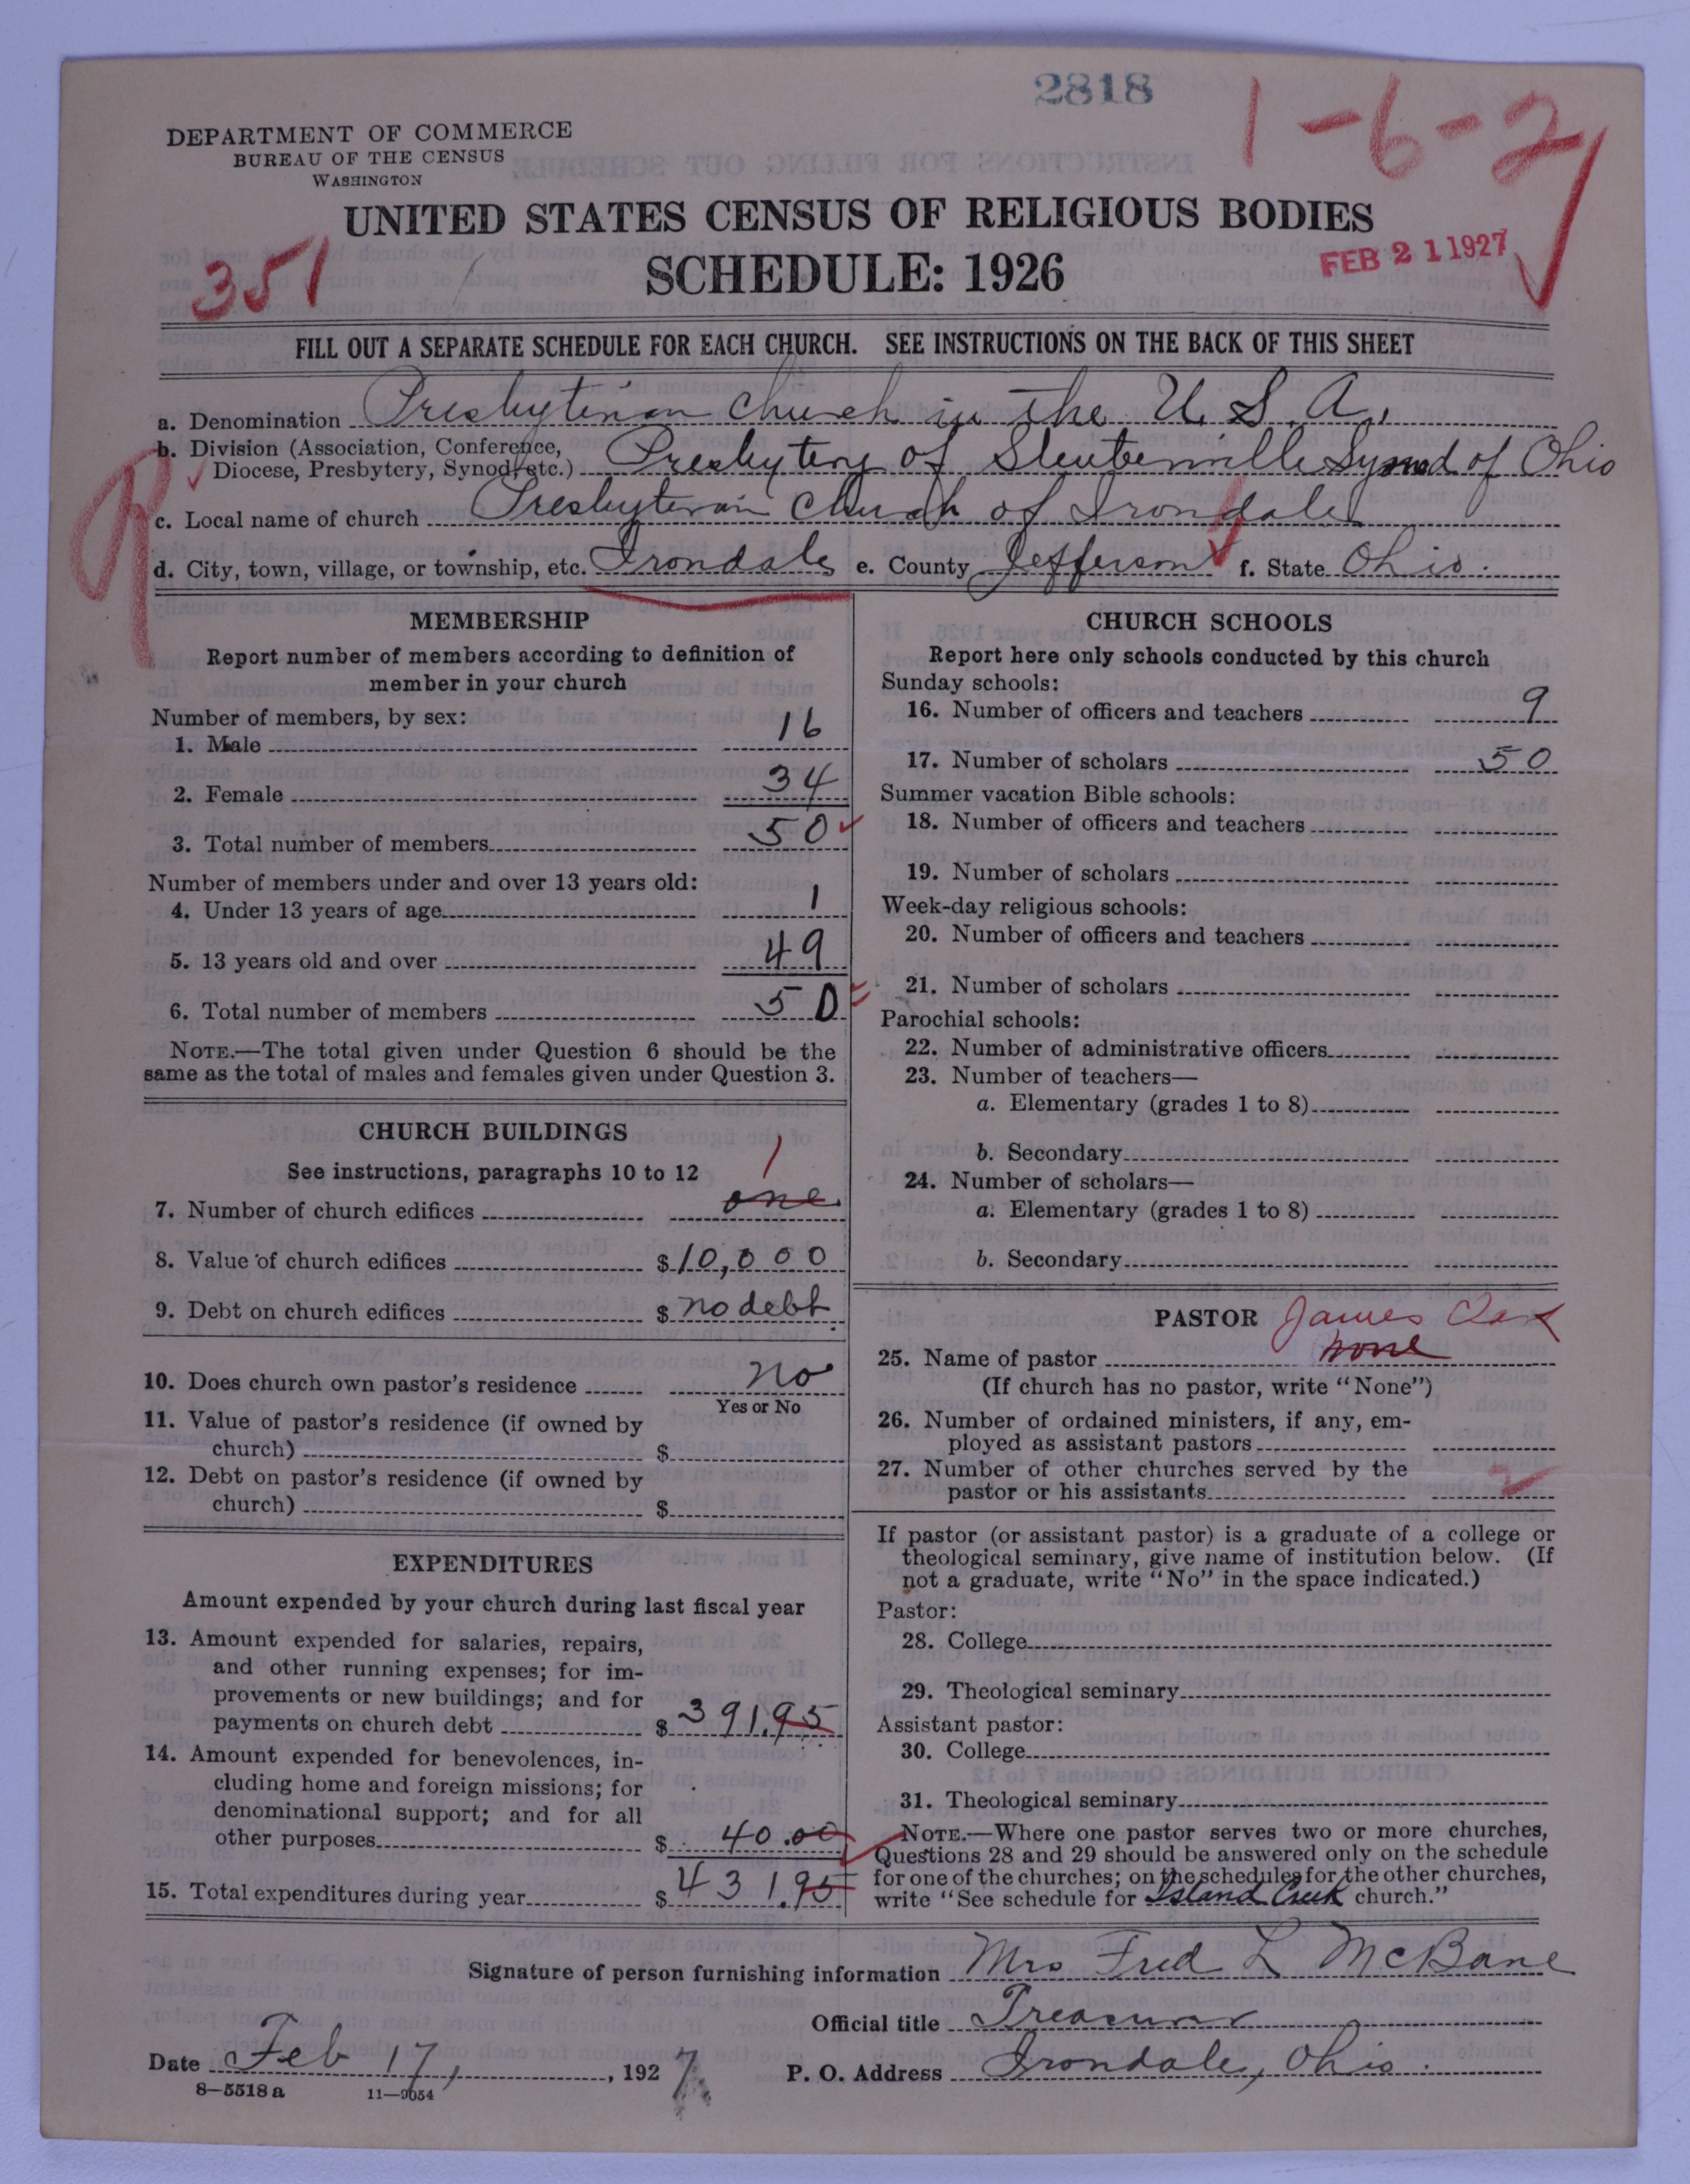 2818
1-6-2
DEPARTMENT OF COMMERCE
BUREAU OF THE CENSUS
WASHINGTON
UNITED STATES CENSUS OF RELIGIOUS BODIES
351
SCHEDULE: 1926
FEB 21 1927
FILL OUT A SEPARATE SCHEDULE FOR EACH CHURCH. SEE INSTRUCTIONS ON THE BACK OF THIS SHEET
a. Denomination Presbyterian Church in the U. S. A.,
b. Division (Association, Conference,
Diocese, Presbytery, Synod, etc.) Presbytery of Steubenville Synod of Ohio
c. Local name of church Presbyterian Church of Irondale
d. City, town, village, or township, etc. Irondale e. County Jefferson f. State Ohio.
MEMBERSHIP
Report number of members according to definition of
member in your church
Number of members, by sex:
1. Male 16
2. Female 34
3. Total number of members 50
Number of members under and over 13 years old:
4. Under 13 years of age 1
5. 13 years old and over 49
6. Total number of members 50
NOTE.—The total given under Question 6 should be the
same as the total of males and females given under Question 3.
CHURCH BUILDINGS
See instructions, paragraphs 10 to 12
1
7. Number of church edifices one
8. Value of church edifices $ 10,000
9. Debt on church edifices $ no debt
10. Does church own pastor's residence No
Yes or No
11. Value of pastor's residence (if owned by
church) $
12. Debt on pastor's residence (if owned by
church) $
EXPENDITURES
Amount expended by your church during last fiscal year
13. Amount expended for salaries, repairs,
and other running expenses; for im-
provements or new buildings; and for
payments on church debt $ 391.95
14. Amount expended for benevolences, in-
cluding home and foreign missions; for
denominational support; and for all
other purposes $ 40.00
15. Total expenditures during year $ 431.95
CHURCH SCHOOLS
Report here only schools conducted by this church
Sunday schools:
16. Number of officers and teachers 9
17. Number of scholars 50
Summer vacation Bible schools:
18. Number of officers and teachers
19. Number of scholars
Week-day religious schools:
20. Number of officers and teachers
21. Number of scholars
Parochial schools:
22. Number of administrative officers
23. Number of teachers—
a. Elementary (grades 1 to 8)
b. Secondary
24. Number of scholars—
a. Elementary (grades 1 to 8)
b. Secondary
PASTOR James
25. Name of pastor none
(If church has no pastor, write "None")
26. Number of ordained ministers, if any, em-
ployed as assistant pastors
27. Number of other churches served by the
pastor or his assistants
If pastor (or assistant pastor) is a graduate of a college or
theological seminary, give name of institution below. (If
not a graduate, write "No" in the space indicated.)
Pastor:
28. College
29. Theological seminary
Assistant pastor:
30. College
31. Theological seminary
NOTE.—Where one pastor serves two or more churches,
Questions 28 and 29 should be answered only on the schedule
for one of the churches; on the schedules for the other churches,
write "See schedule for Island Creek church."
Signature of person furnishing information Mrs Fred L McBane
Official title Treasurer
Date Feb 17, 1927. P. O. Address Irondale, Ohio.
8—5518 a 11—9054